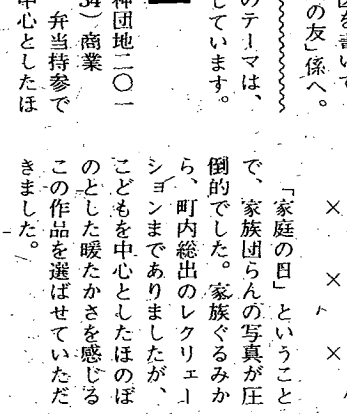 を書いて
の友」係へ。
のテーマは、
しています。
神団地二〇一
34）商業
弁当持参で
中心としたほ
× × ×
「家庭の日」ということ
で、家族団らんの写真が圧
倒的でした。家族ぐるみか
ら、町内総出のレクリェー
ションまでありましたが、
こどもを中心としたほのぼ
のとした暖たかさを感じる
この作品を選ばせていただ
きました。